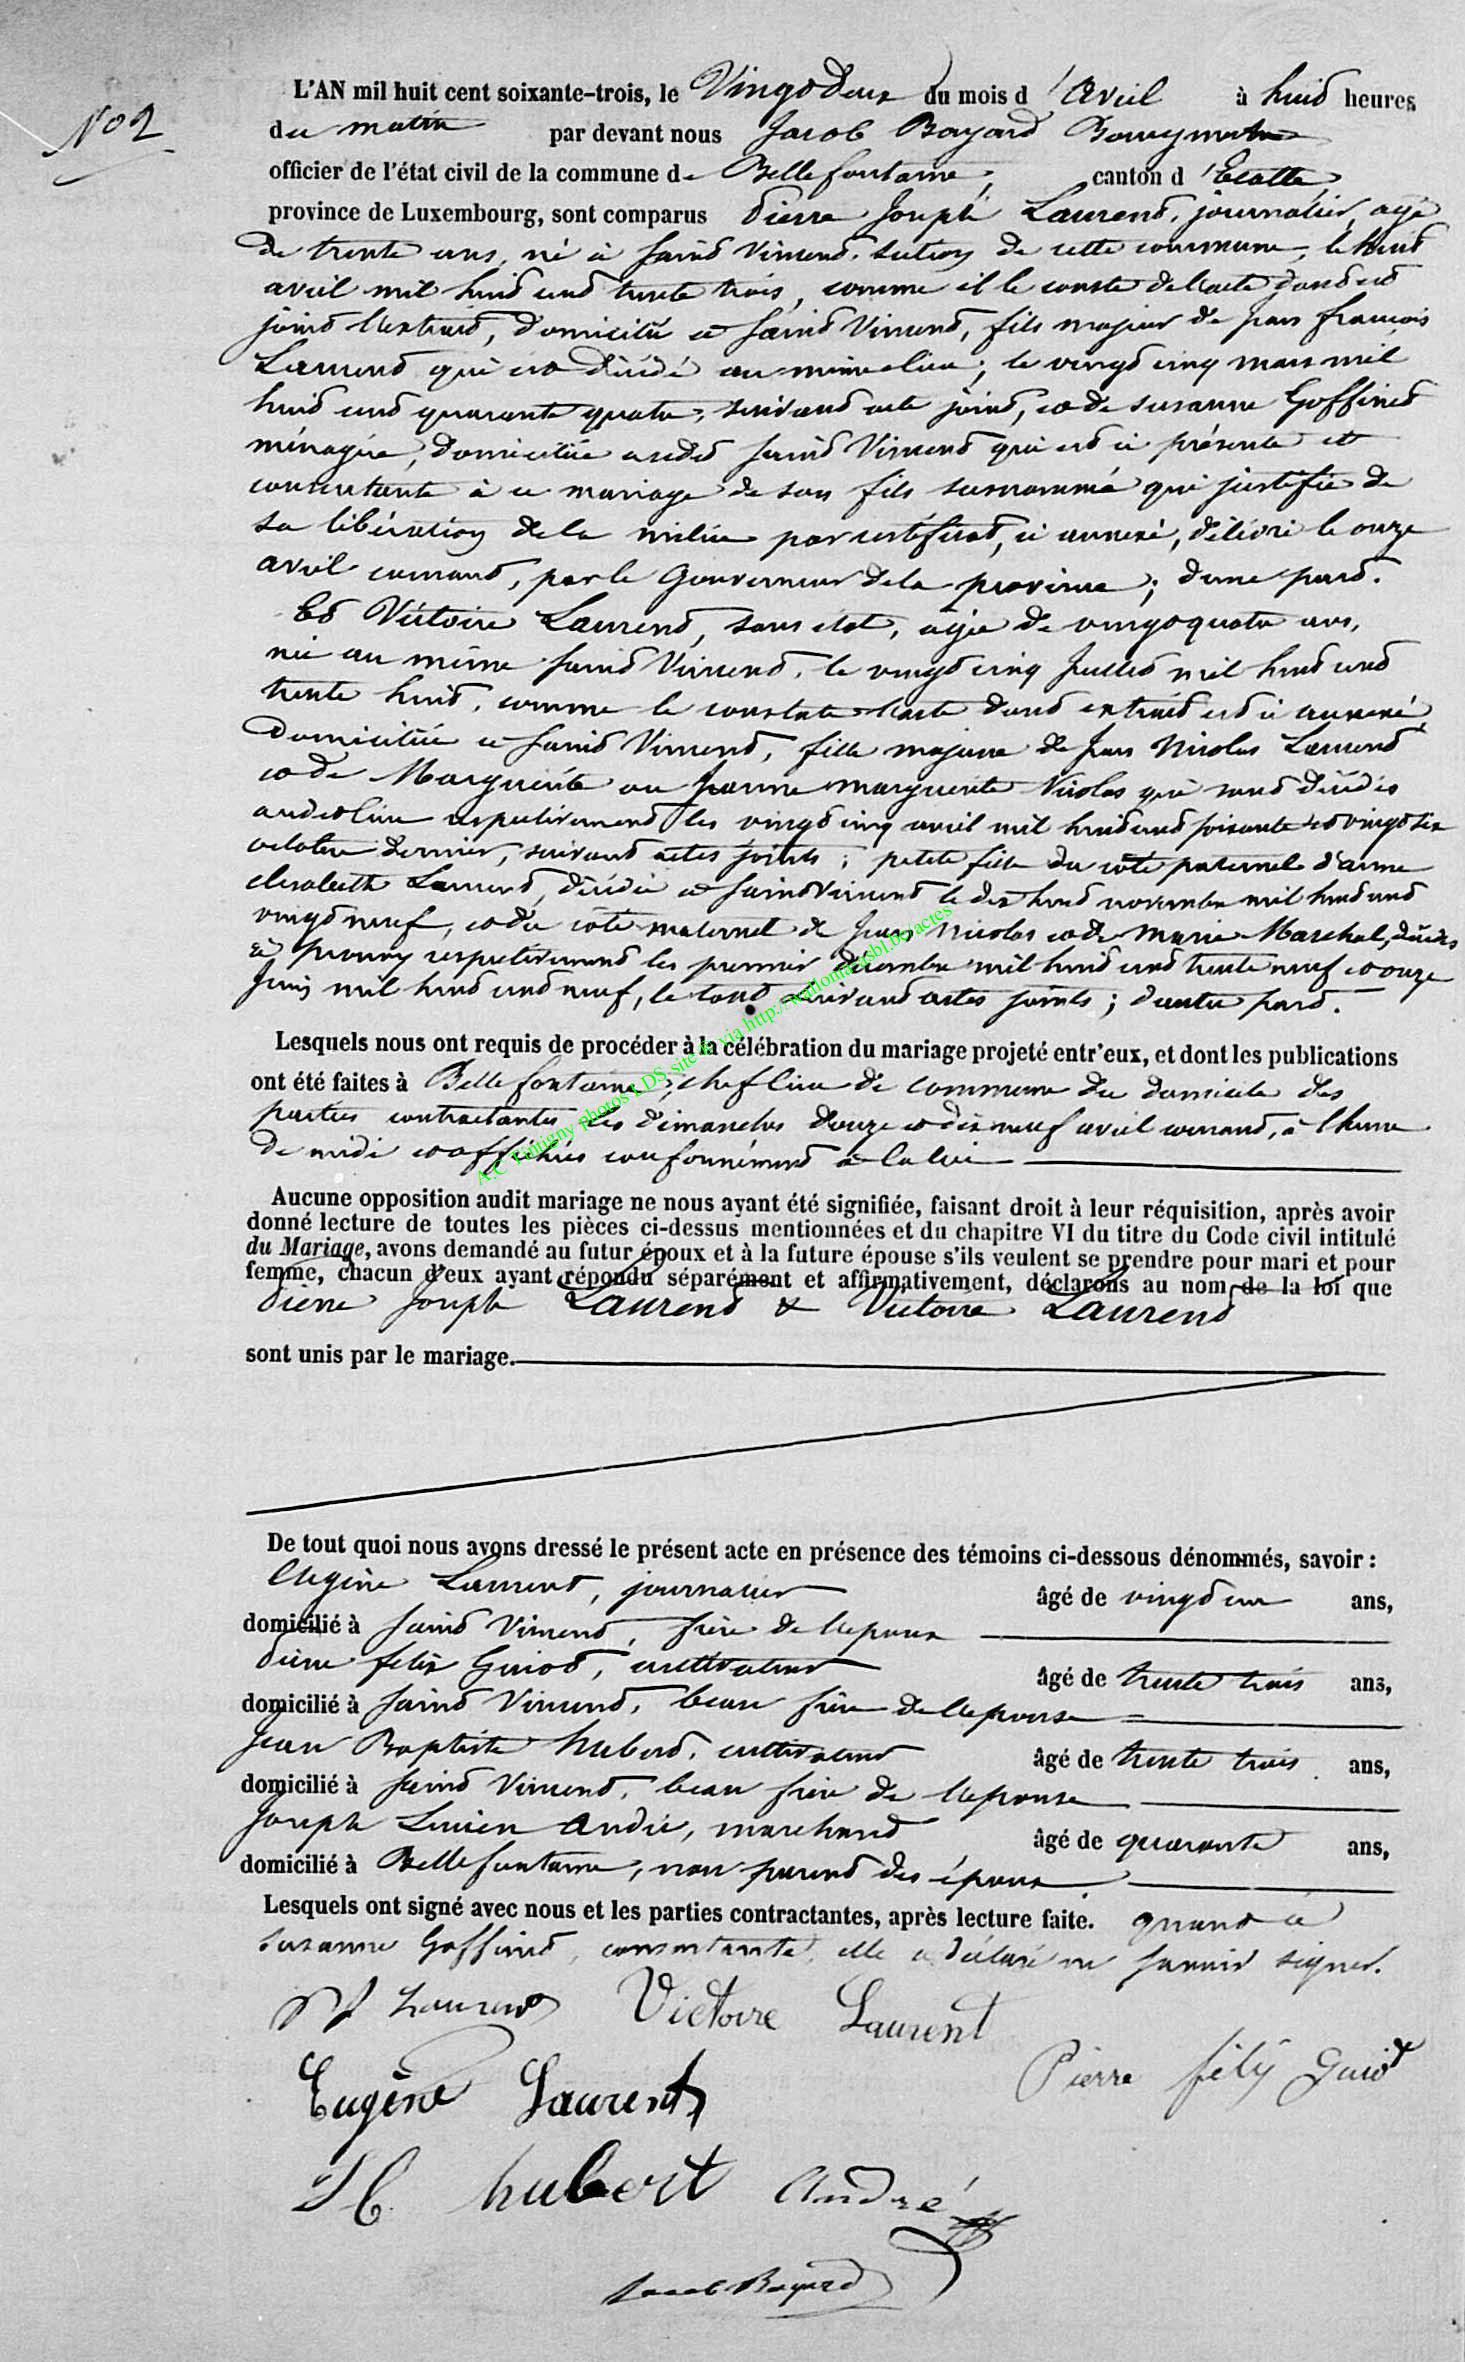 No 2
L'AN mil huit cent soixante-trois, le Vingt Deux du mois d'Avril à huit heures
du matin par devant nous Jacob Bayard Bourgmestre
officier de l'état civil de la commune de Bellefontaine, canton d'Etalle,
province de Luxembourg, sont comparus Pierre Joseph Laurent, journalier, agé
de trente ans, né à Saint Vincent, section de cette commune, le huit
avril mil huit cent trente trois, comme il le conste de l'acte dont est
joint l'extrait, domicilié à Saint Vincent, fils majeur de Jean François
Laurent qui est décédé au même lieu, le vingt cinq mars mil
huit cent quarante quatre, suivant acte joint, et de Susanne Goffinet
ménagère, domiciliée audit Saint Vincent qui est ici présente et
consentante à ce mariage de son fils susnommé qui justifie de
sa libération de la milice par certificat, ci annexé, délivré le onze
avril courant, par le Gouverneur de la province; d'une part.
Et Victoire Laurent, sans état, agée de vingt quatre ans,
née au même Saint Vincent, le vingt cinq Juillet mil huit cent
trente huit, comme le constate l'acte dont extrait est ci annexé,
domiciliée à Saint Vincent, fille majeure de Jean Nicolas Laurent
et de Marguerite ou Jeanne Marguerite Nicolas qui sont décédés
audit lieu respectivement les vingt cinq avril mil huit cent soixante et vingt six
octobre dernier, suivant actes joints; petite fille du côté paternel d'anne
elisabeth Laurent, décédée à Saint Vincent le dix huit novembre mil huit cent
vingt neuf, et du côté maternel de Jean Nicolas et de Marie Marechal, décédés
à Prouvy respectivement les premier décembre mil huit cent trente neuf et onze
Juin mil huit cent neuf, le tout suivant actes joints; d'autre part.
Lesquels nous ont requis de procéder à la célébration du mariage projeté entr'eux, et dont les publications
ont été faites à Bellefontaine, chef lieu de commune du domicile des
parties contractantes les dimanches douze et dix neuf avril courant, à l'heure
de midi et affichées conformément à la loi
Aucune opposition audit mariage ne nous ayant été signifiée, faisant droit à leur réquisition, après avoir
donné lecture de toutes les pièces ci-dessus mentionnées et du chapitre VI du titre du Code civil intitulé
du Mariage, avons demandé au futur époux et à la future épouse s'ils veulent se prendre pour mari et pour
femme, chacun d'eux ayant répondu séparément et affirmativement, déclarons au nom de la loi que
Pierre Joseph Laurent & Victoire Laurent
sont unis par le mariage.
De tout quoi nous avons dressé le présent acte en présence des témoins ci-dessous dénommés, savoir :
Eugène Laurent, journalier âgé de vingt un ans,
domicilié à Saint Vincent, frère de l'époux
Pierre felix Guiot, cultivateur âgé de trente trois ans,
domicilié à Saint Vincent, beau frère de l'épouse
Jean Baptiste hubert, cultivateur âgé de trente trois ans,
domicilié à Saint Vincent, beau frère de l'épouse
Joseph Lucien André, marchand âgé de quarante ans,
domicilié à Bellefontaine, non parent des époux
Lesquels ont signé avec nous et les parties contractantes, après lecture faite. quant à
Susanne Goffinet, consentante, elle a déclaré ne savoir signer.
P J Laurent Victoire Laurent
Eugène Laurent Pierre félix Guiot
J B hubert André
Jacob Bayard
A.C Tintigny photos LDS site & via http://wallonia.asbl.be/actes